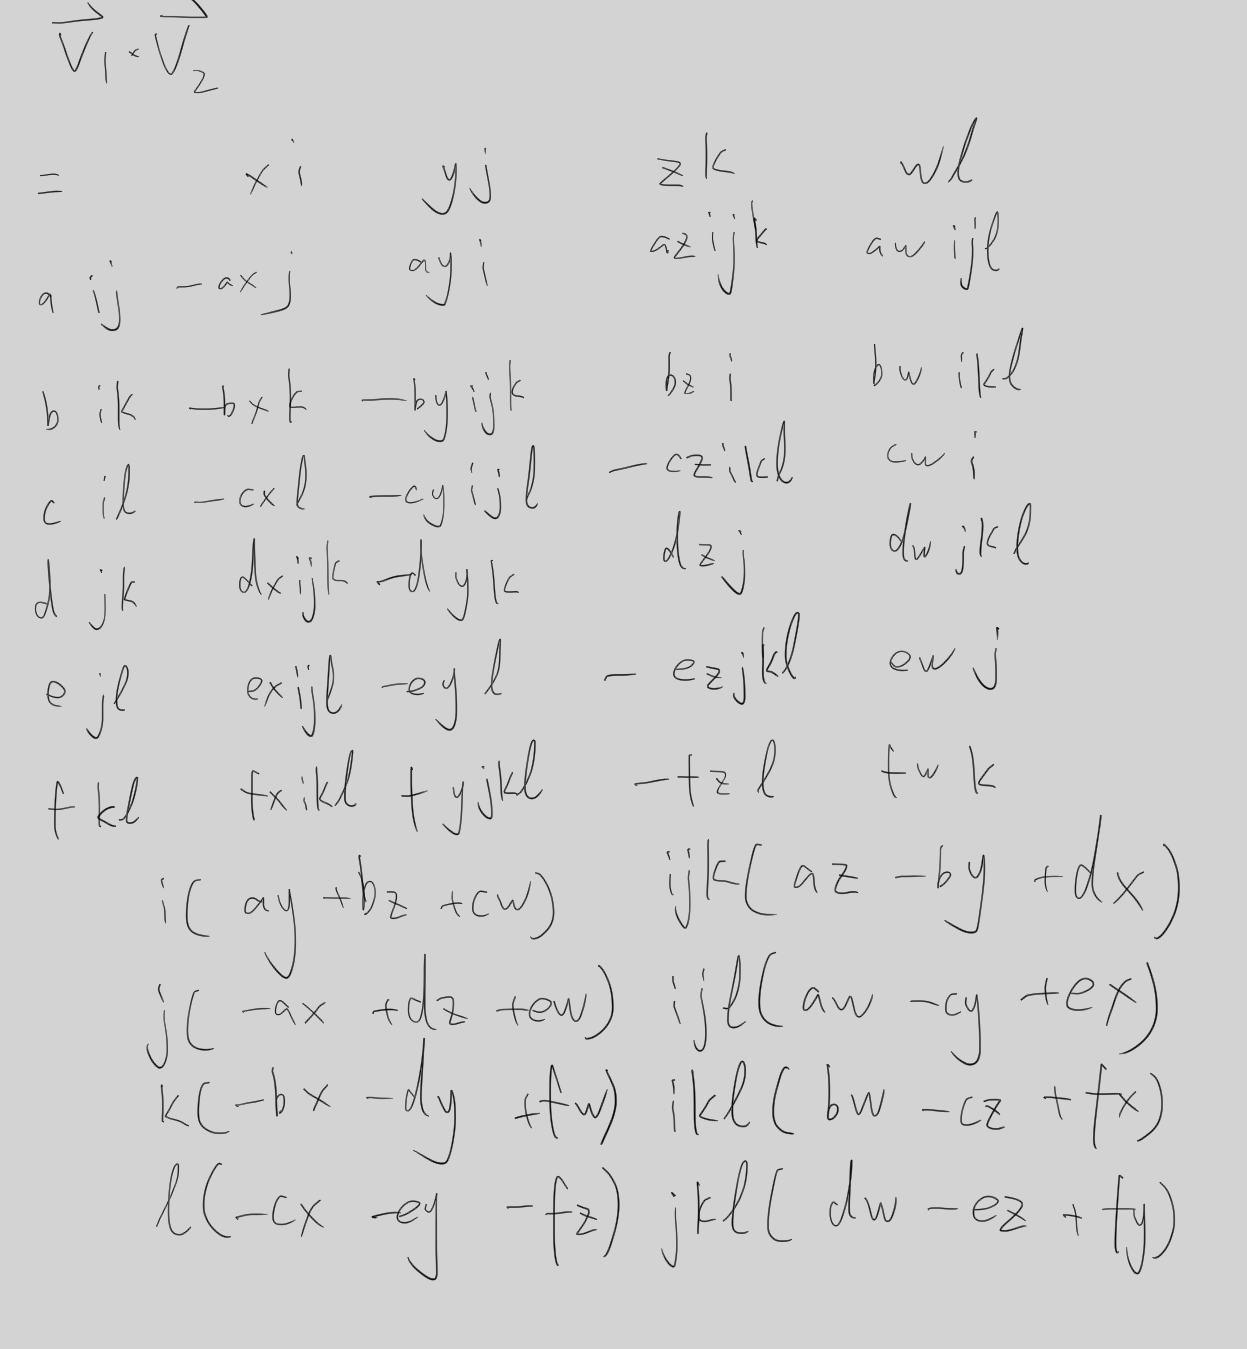 V₁ × V₂
= xi yj zk wl
a ij -ax j ay i az ijk aw ijl
b ik -bx k -by ijk bz i bw ikl
c il -cx l -cy ijl -cz ikl cw i
d jk dx ijk -dy k dz j dw jkl
e jl ex ijl -ey l -ez jkl ew j
f kl fx ikl fy jkl -fz l fw k
i( ay +bz +cw) ijk( az -by +dx)
j( -ax +dz +ew) ijl( aw -cy +ex)
k( -bx -dy +fw) ikl( bw -cz +fx)
l( -cx -ey -fz) jkl( dw -ez +fy)